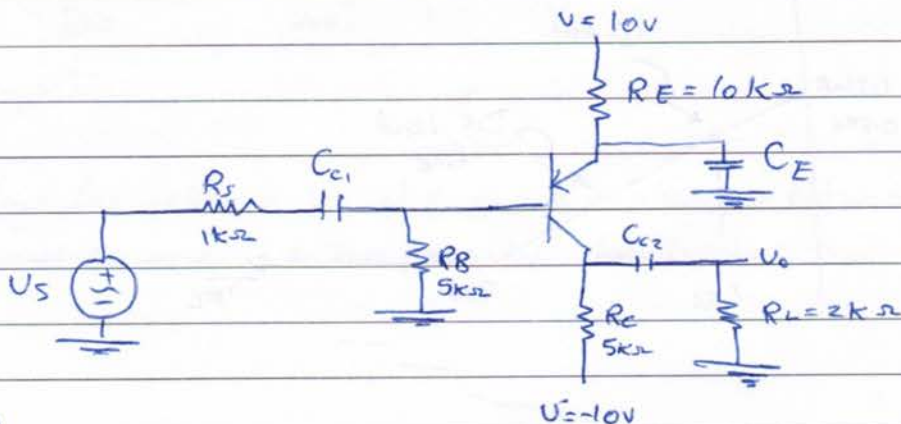 V = 10V
RE = 10KΩ
Cc1
CE
Rs
1KΩ
Cc2
RB
5KΩ
Vo
Vs
Rc
5KΩ
RL = 2KΩ
V⁻=-10V